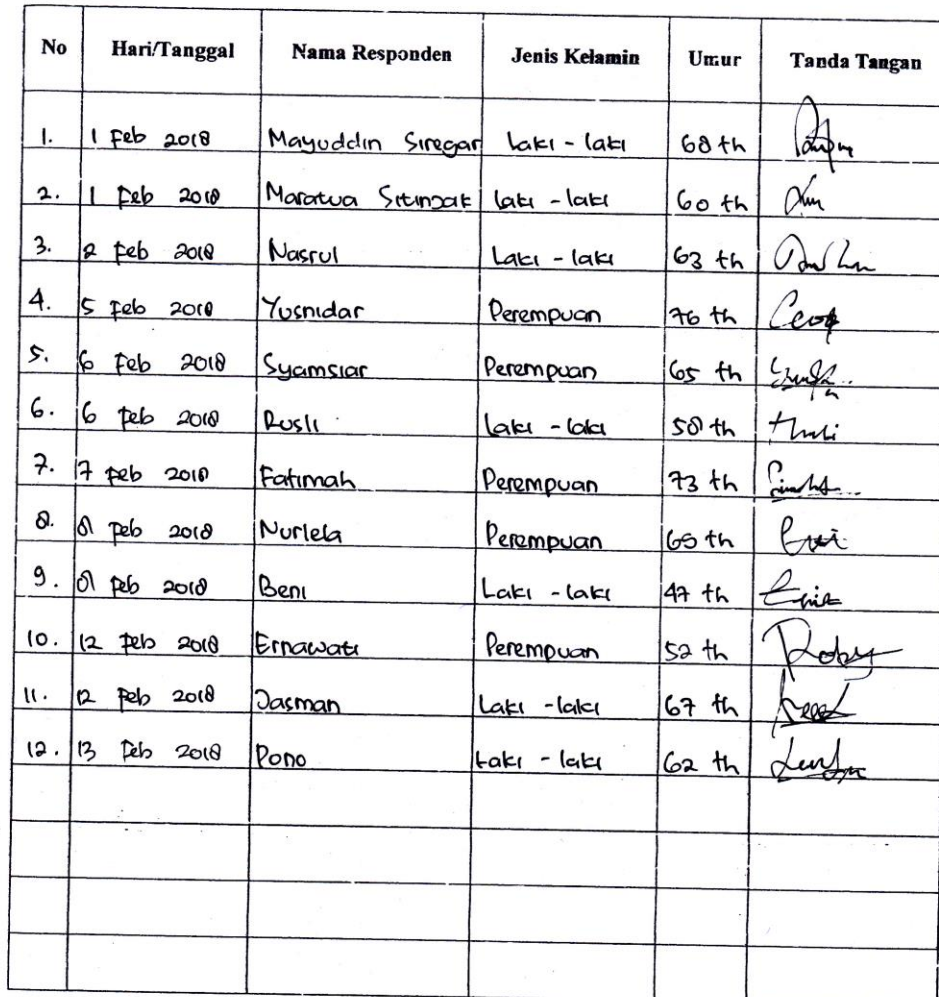 No Hari/Tanggal Nama Responden Jenis Kelamin Umur Tanda Tangan
1. 1 Feb 2018 Mayuddin Siregar Laki - laki 68 th
2. 1 Feb 2018 Maratua Sitinjak laki - laki 60 th
3. 2 Feb 2018 Nasrul Laki - laki 63 th
4. 5 Feb 2018 Yusnidar Perempuan 76 th
5. 6 Feb 2018 Syamsiar Perempuan 65 th
6. 6 Feb 2018 Rusli Laki - laki 58 th
7. 7 Feb 2018 Fatimah Perempuan 73 th
8. 8 Feb 2018 Nurlela Perempuan th
9. 8 Feb 2018 Beni Laki - laki 47 th
10. 12 Feb 2018 Ernawati Perempuan 52 th
11. 12 Feb 2018 Jasman Laki - laki 67 th
12. 13 Feb 2018 Pono Laki - laki 62 th